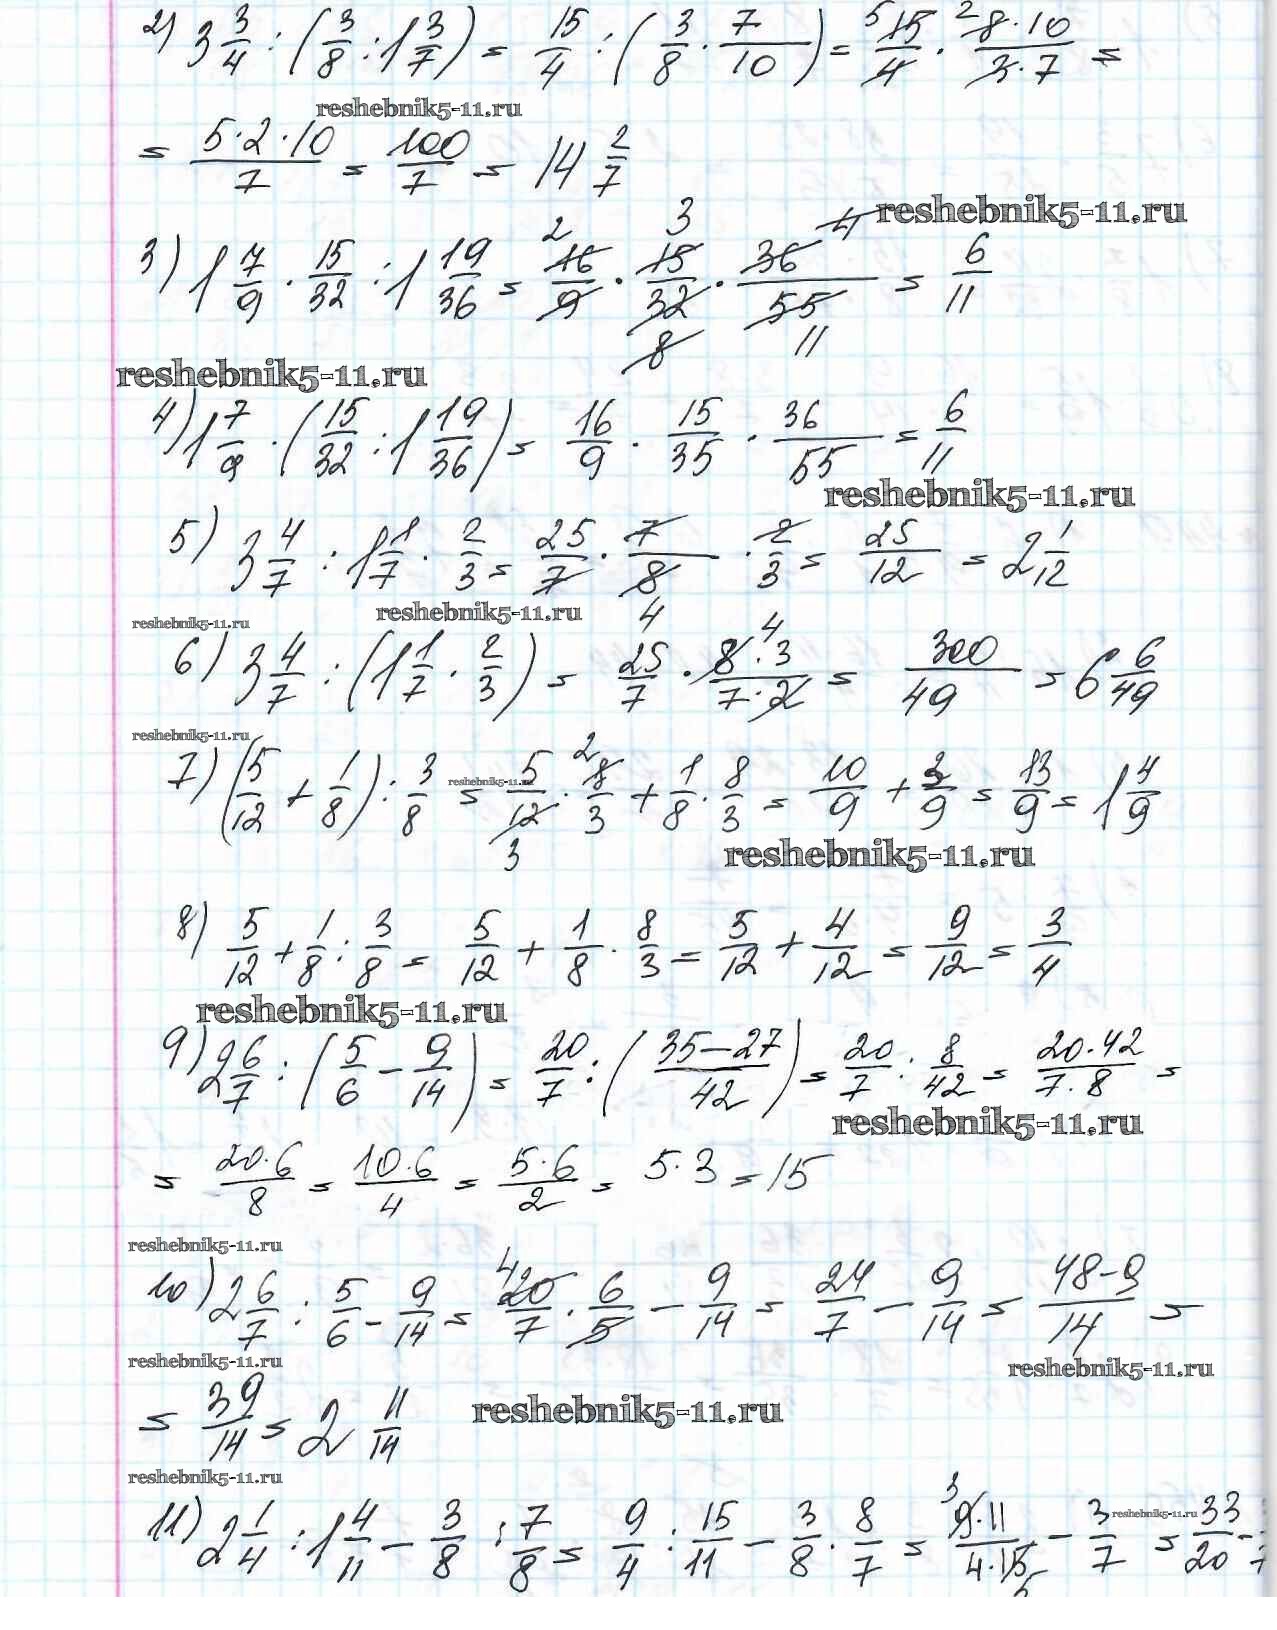 2) 3 3/4 : (3/8 : 1 3/7) = 15/4 : (3/8 · 7/10) = 5 15/4 · 2 8·10/3·7 =
reshebnik5-11.ru
= 5·2·10/7 = 100/7 = 14 2/7
reshebnik5-11.ru
3) 1 7/9 · 15/32 : 1 19/36 = 2 16/9 · 3 15/32 8 · 36 4/55 11 = 6/11
reshebnik5-11.ru
4) 1 7/9 · (15/32 : 1 19/36) = 16/9 · 15/35 · 36/55 = 6/11
reshebnik5-11.ru
5) 3 4/7 : 1 1/7 · 2/3 = 25/7 · 7/8 4 · 2/3 = 25/12 = 2 1/12
reshebnik5-11.ru reshebnik5-11.ru
6) 3 4/7 : (1 1/7 · 2/3) = 25/7 · 8 4·3/7·2 = 300/49 = 6 6/49
reshebnik5-11.ru
7) (5/12 + 1/8) : 3/8 = 5/12 3 · 2 8/3 + 1/8 · 8/3 = 10/9 + 3/9 = 13/9 = 1 4/9
reshebnik5-11.ru
reshebnik5-11.ru
8) 5/12 + 1/8 : 3/8 = 5/12 + 1/8 · 8/3 = 5/12 + 4/12 = 9/12 = 3/4
reshebnik5-11.ru
9) 2 6/7 : (5/6 - 9/14) = 20/7 : (35-27/42) = 20/7 : 8/42 = 20·42/7·8 =
reshebnik5-11.ru
= 20·6/8 = 10·6/4 = 5·6/2 = 5·3 = 15
reshebnik5-11.ru
10) 2 6/7 : 5/6 - 9/14 = 4 20/7 · 6/5 - 9/14 = 24/7 - 9/14 = 48-9/14 =
reshebnik5-11.ru reshebnik5-11.ru
= 39/14 = 2 11/14
reshebnik5-11.ru
reshebnik5-11.ru
11) 2 1/4 : 1 4/11 - 3/8 : 7/8 = 9/4 : 15/11 - 3/8 · 8/7 = 3 9·11/4·15 5 - 3/7 = 33/20 -
reshebnik5-11.ru